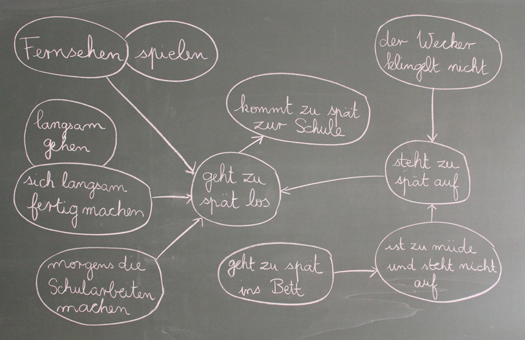 Fernsehen spielen
der Wecker
klingelt nicht
kommt zu spät
zur Schule
langsam
gehen
steht zu
spät auf
geht zu
spät los
sich langsam
fertig machen
ist zu müde
und steht nicht
auf
morgens die
Schularbeiten
machen
geht zu spät
ins Bett